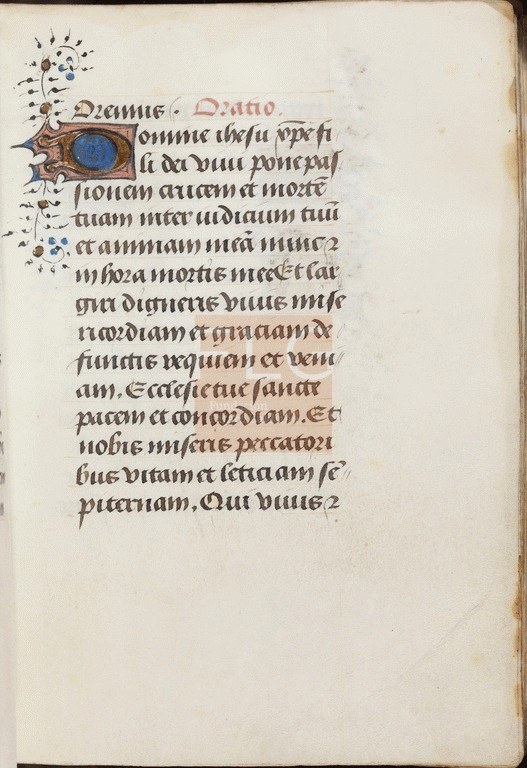 Oremus. Oratio.
Domine ihesu xp̄e fi
li dei viui pone pas
sionem crucem et mortē
tuam inter iudicium tuū
et animam meā nunc ⁊
in hora mortis mee Et lar
giri digneris viuis mise
ricordiam et graciam de
functis requiem et veni
am. Ecclesie tue sancte
pacem et concordiam. Et
nobis miseris peccatori
bus vitam et leticiam sē
piternam. Qui viuis ⁊
FLC